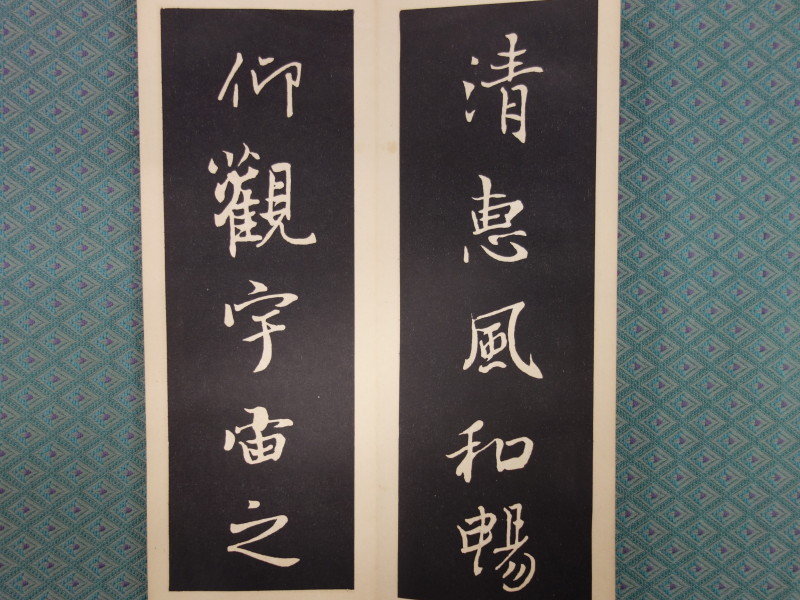 清惠風和暢
仰觀宇宙之